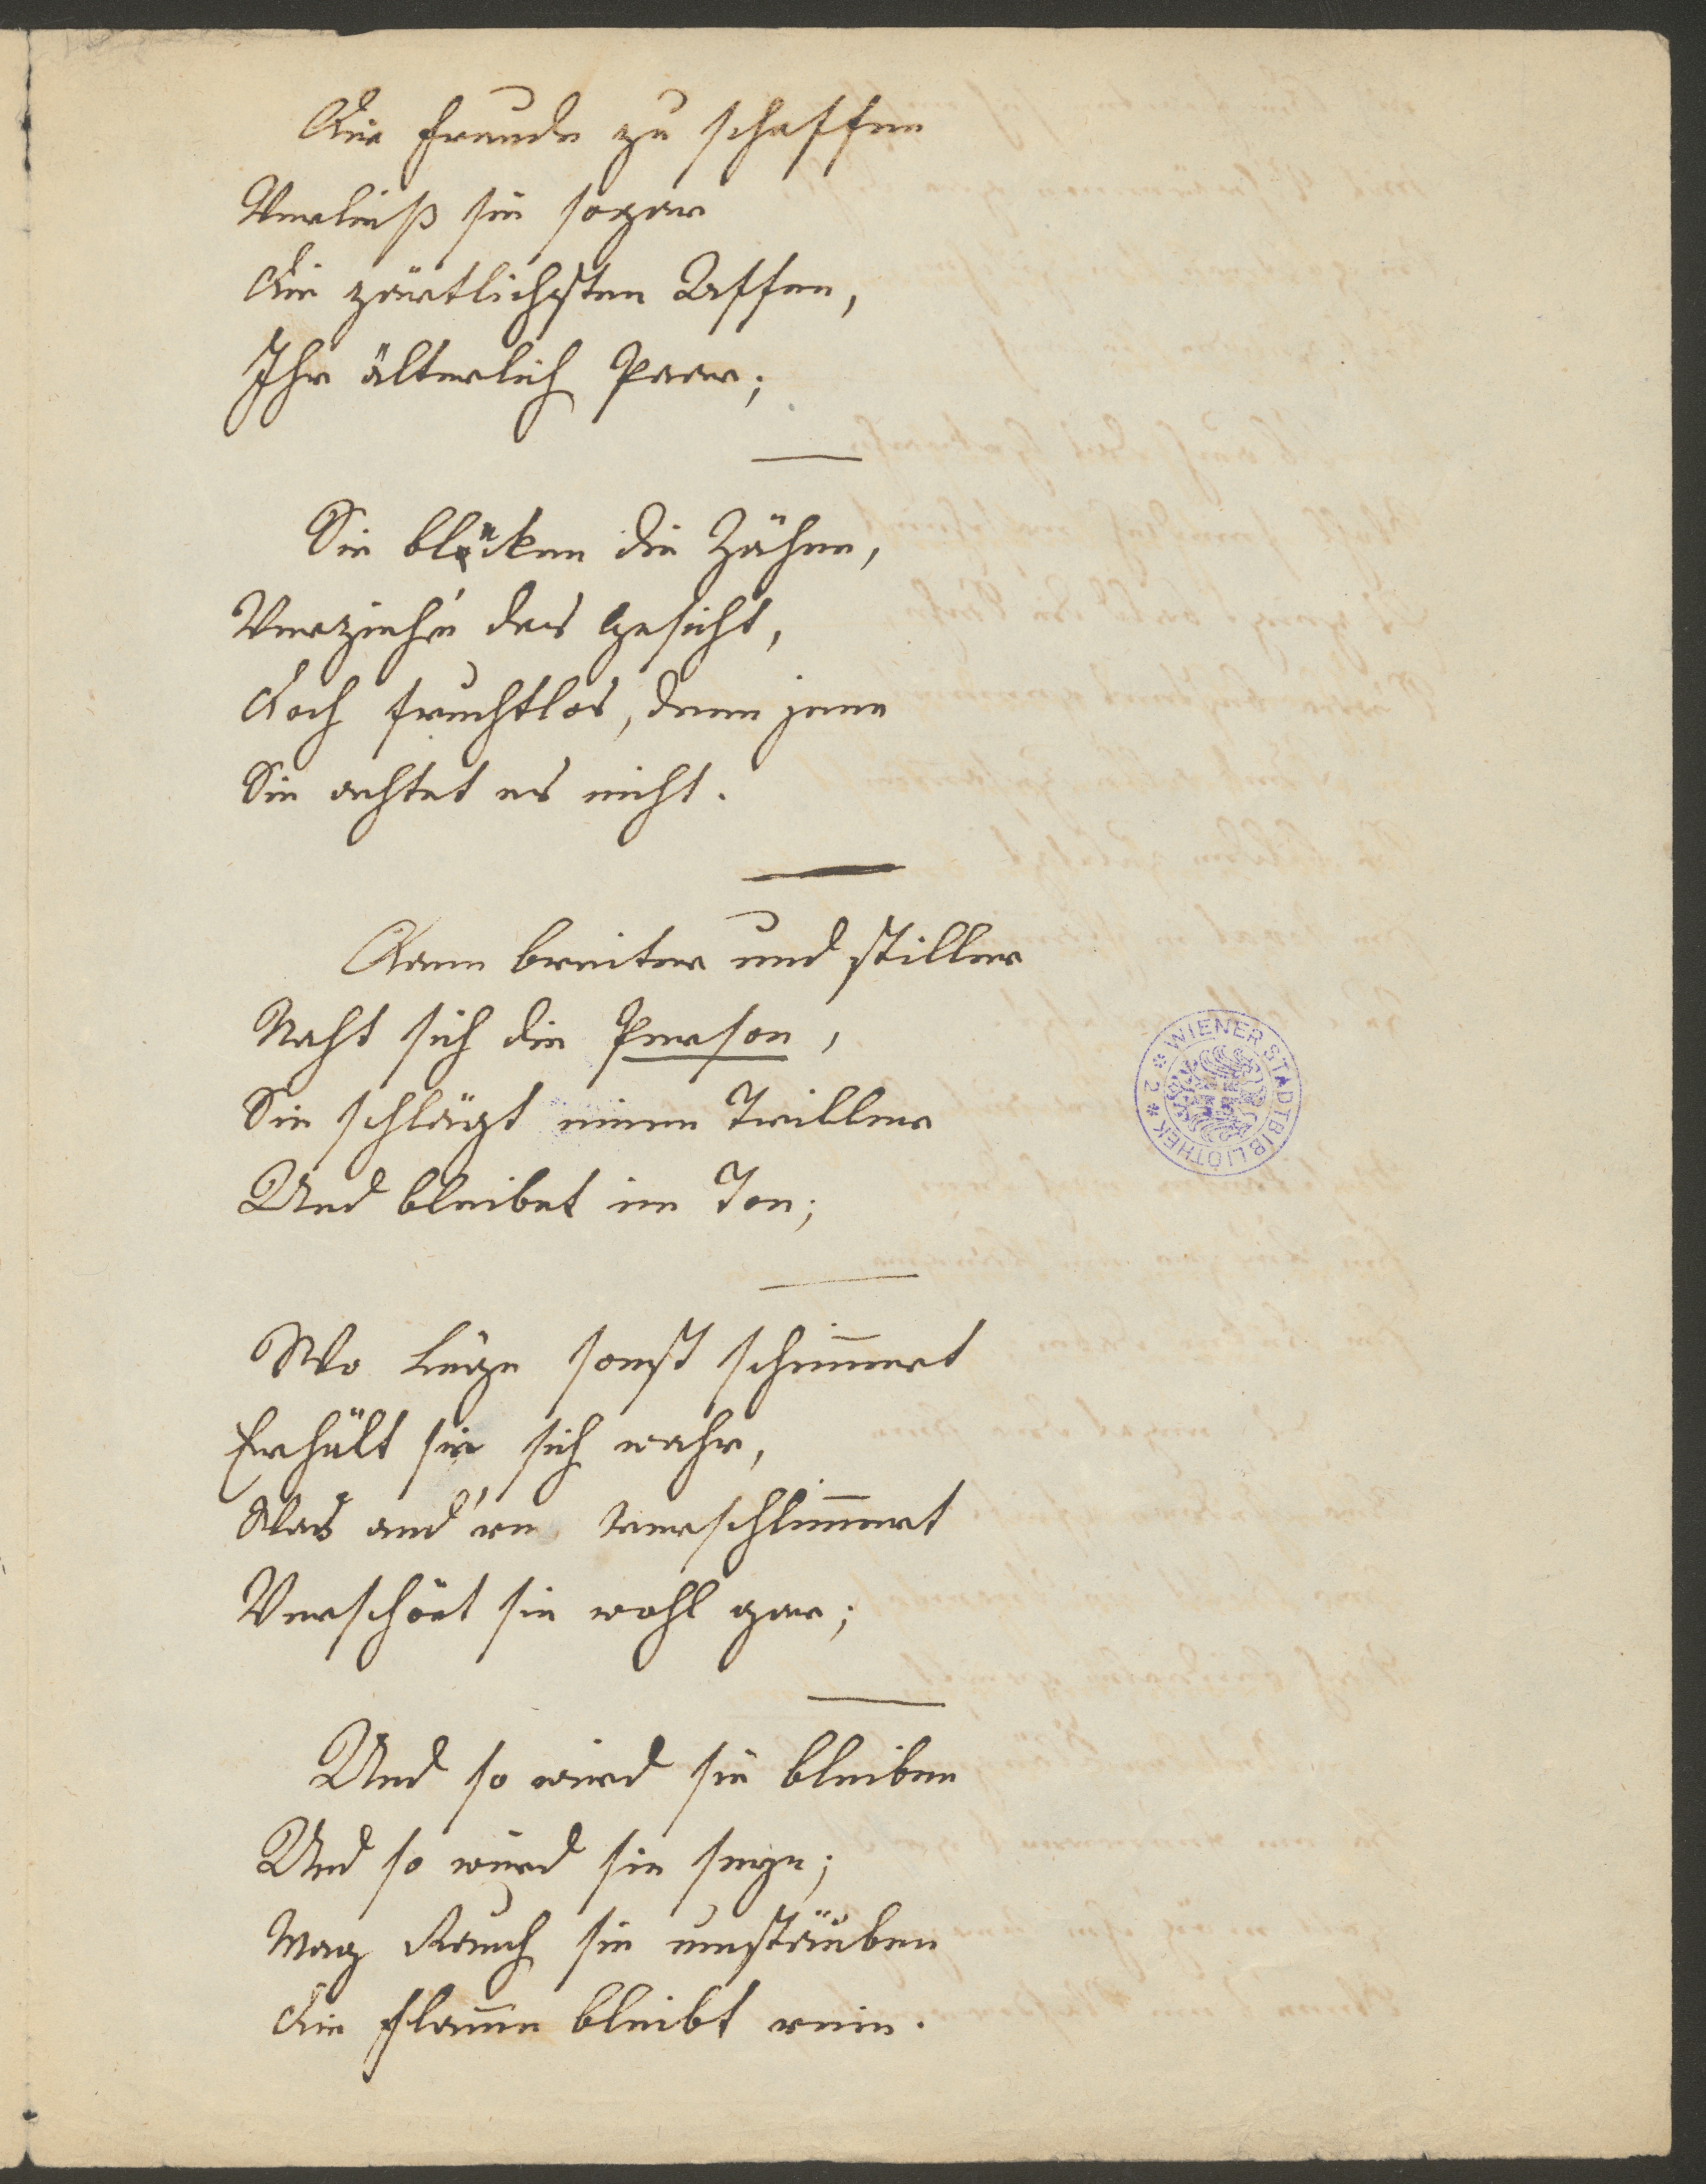 Die Freude zu schaffen
Verließ sie sogar
Die zärtlichsten Affen,
Ihr älterlich Paar;
Sie blöcken die Zähne,
Verzieh'n das Gesicht,
Doch fruchtlos, denn jene
Sie achtet es nicht.
Dann breiter und stiller
Naht sich die Person,
Sie schlägt einen Triller
Und bleibet im Ton;
Wo Lüge sonst schim̅ert
Erhält sie sich wahr,
Was and're verschlim̅ert
Verschönt sie wohl gar;
Und so wird sie bleiben
Und so wird sie seyn;
Mag Rauch sie umstäuben
Die Flam̅e bleibt rein.
WIENER STADTBIBLIOTHEK * 2 *